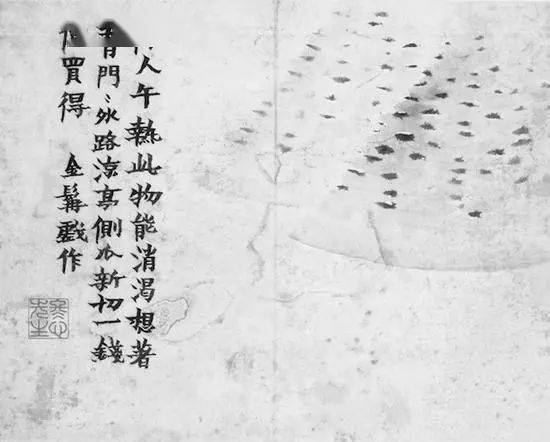 人午熱此物能消渴想著
青門〻外路涼亭側瓜新切一錢
買得 金髯戲作
冬心先生